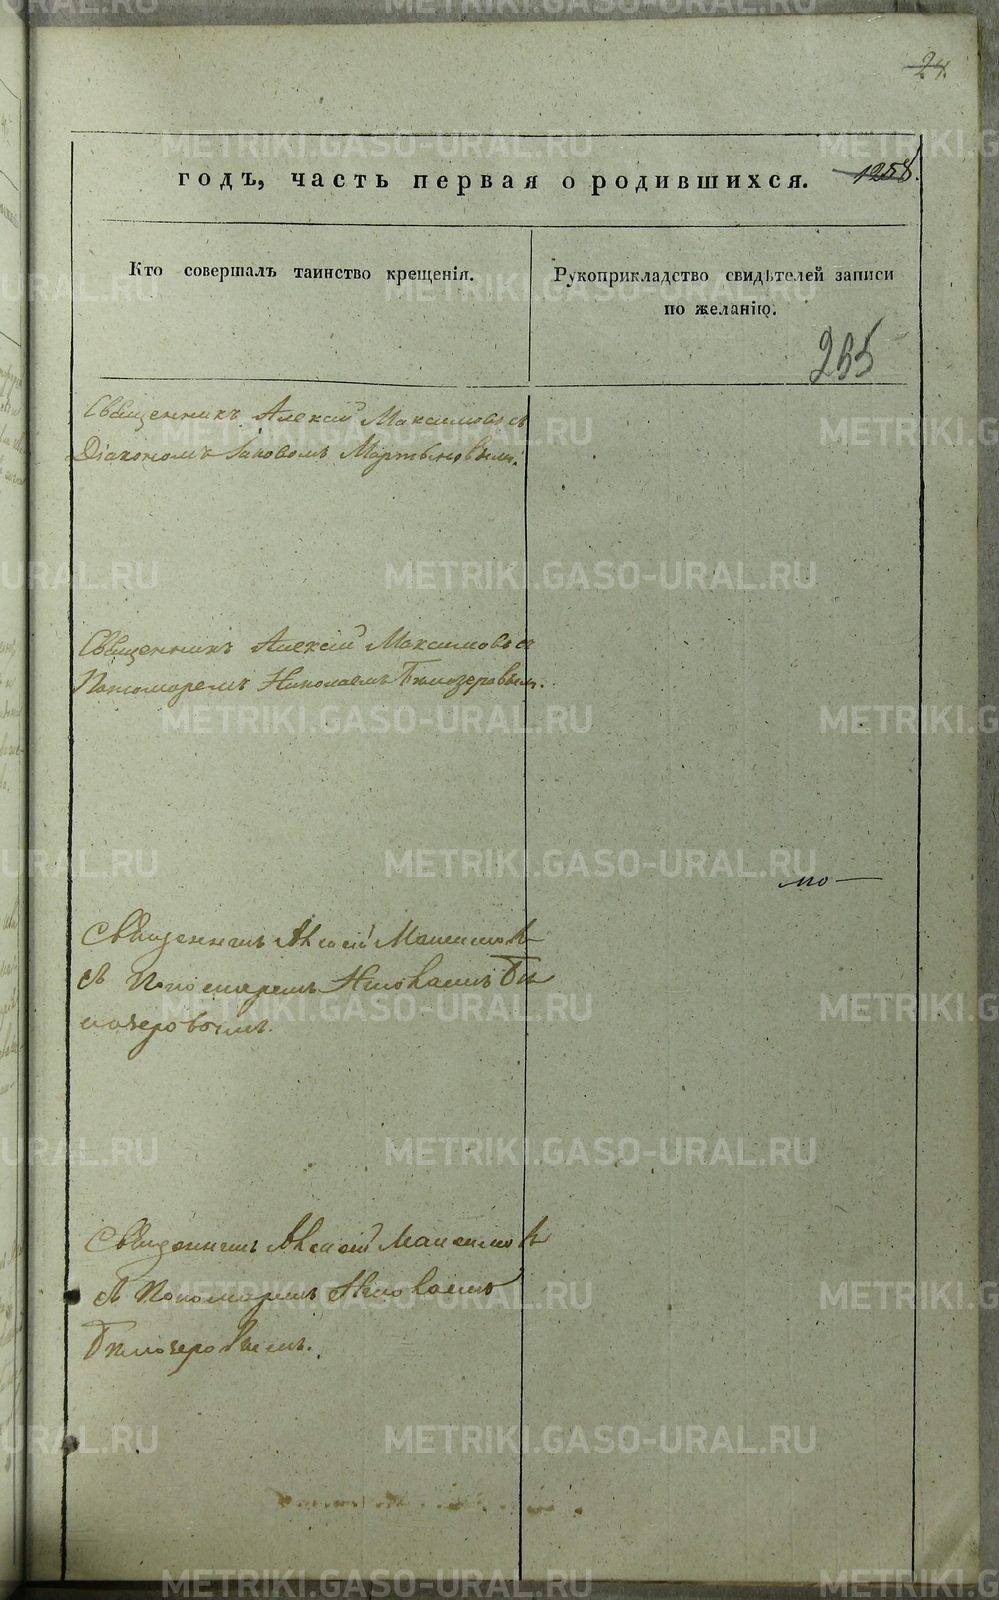 24.
годъ, часть первая о родившихся. 1258.
Кто совершалъ таинство крещенія.
Рукоприкладство свидѣтелей записи
по желанію.
265
Священникъ Алексій Максимовъ съ
Діакономъ Іаковомъ Мартыновымъ.
Священникъ Алексій Максимовъ съ
Пономаремъ Николаемъ Бѣлозеровымъ.
по
Священникъ Алексій Максимовъ
съ Пономаремъ Николаемъ Бѣ
лозеровымъ.
Священникъ Алексій Максимовъ
съ Пономаремъ Николаемъ
Бѣлозеровымъ.
METRIKI.GASO-URAL.RU